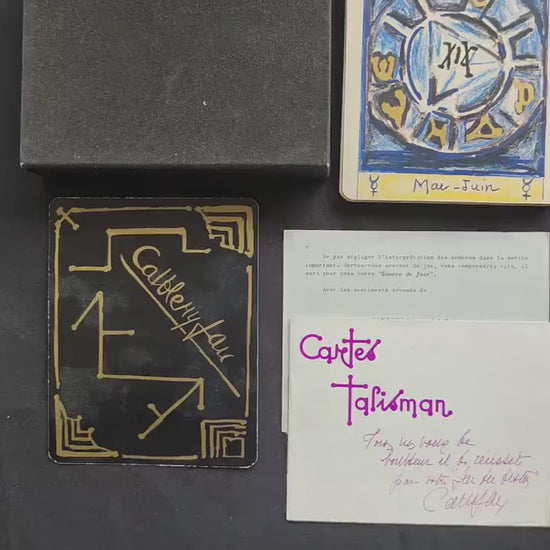 XIX
Mai-Juin
Cabblery fau
6
Ne pas négliger l'interprétation des nombres dans la notice
important. Servez-vous souvent du jeu, vous comprendrez vite, il
sera pour vous votre "Source de Joie".
Avec les sentiments dévoués de
Cartes
Talisman
Tous mes voeux de
bonheur et de réussite
par votre "Jeu